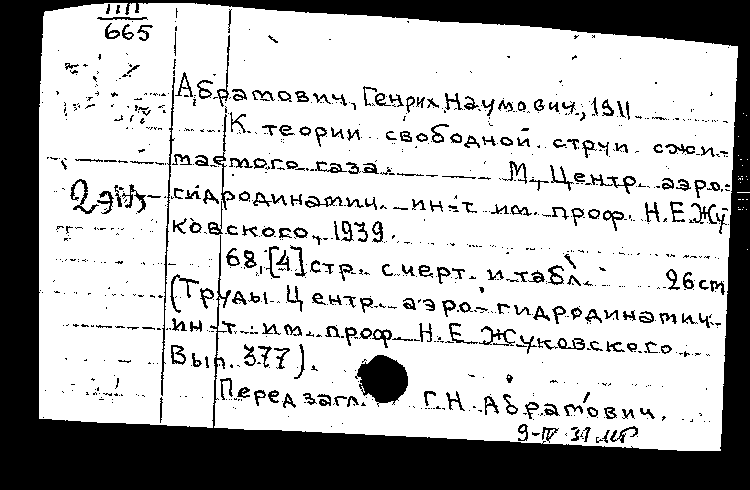 III
665
Абрамович, Генрих Наумович, 1911
К теории свободной струи сжи-
маемого газа. М., Центр. аэро-
2 экз гидродинамич. ин-т им. проф. Н.Е.Жу
ковского, 1939.
68, [4] стр. с черт. и табл. 26 cm
(Труды Центр. аэро-гидродинамич.
ин-т им. проф. Н.Е Жуковского,
Вып. 377).
Перед загл. Г.Н. Абрамович.
9-IV 39